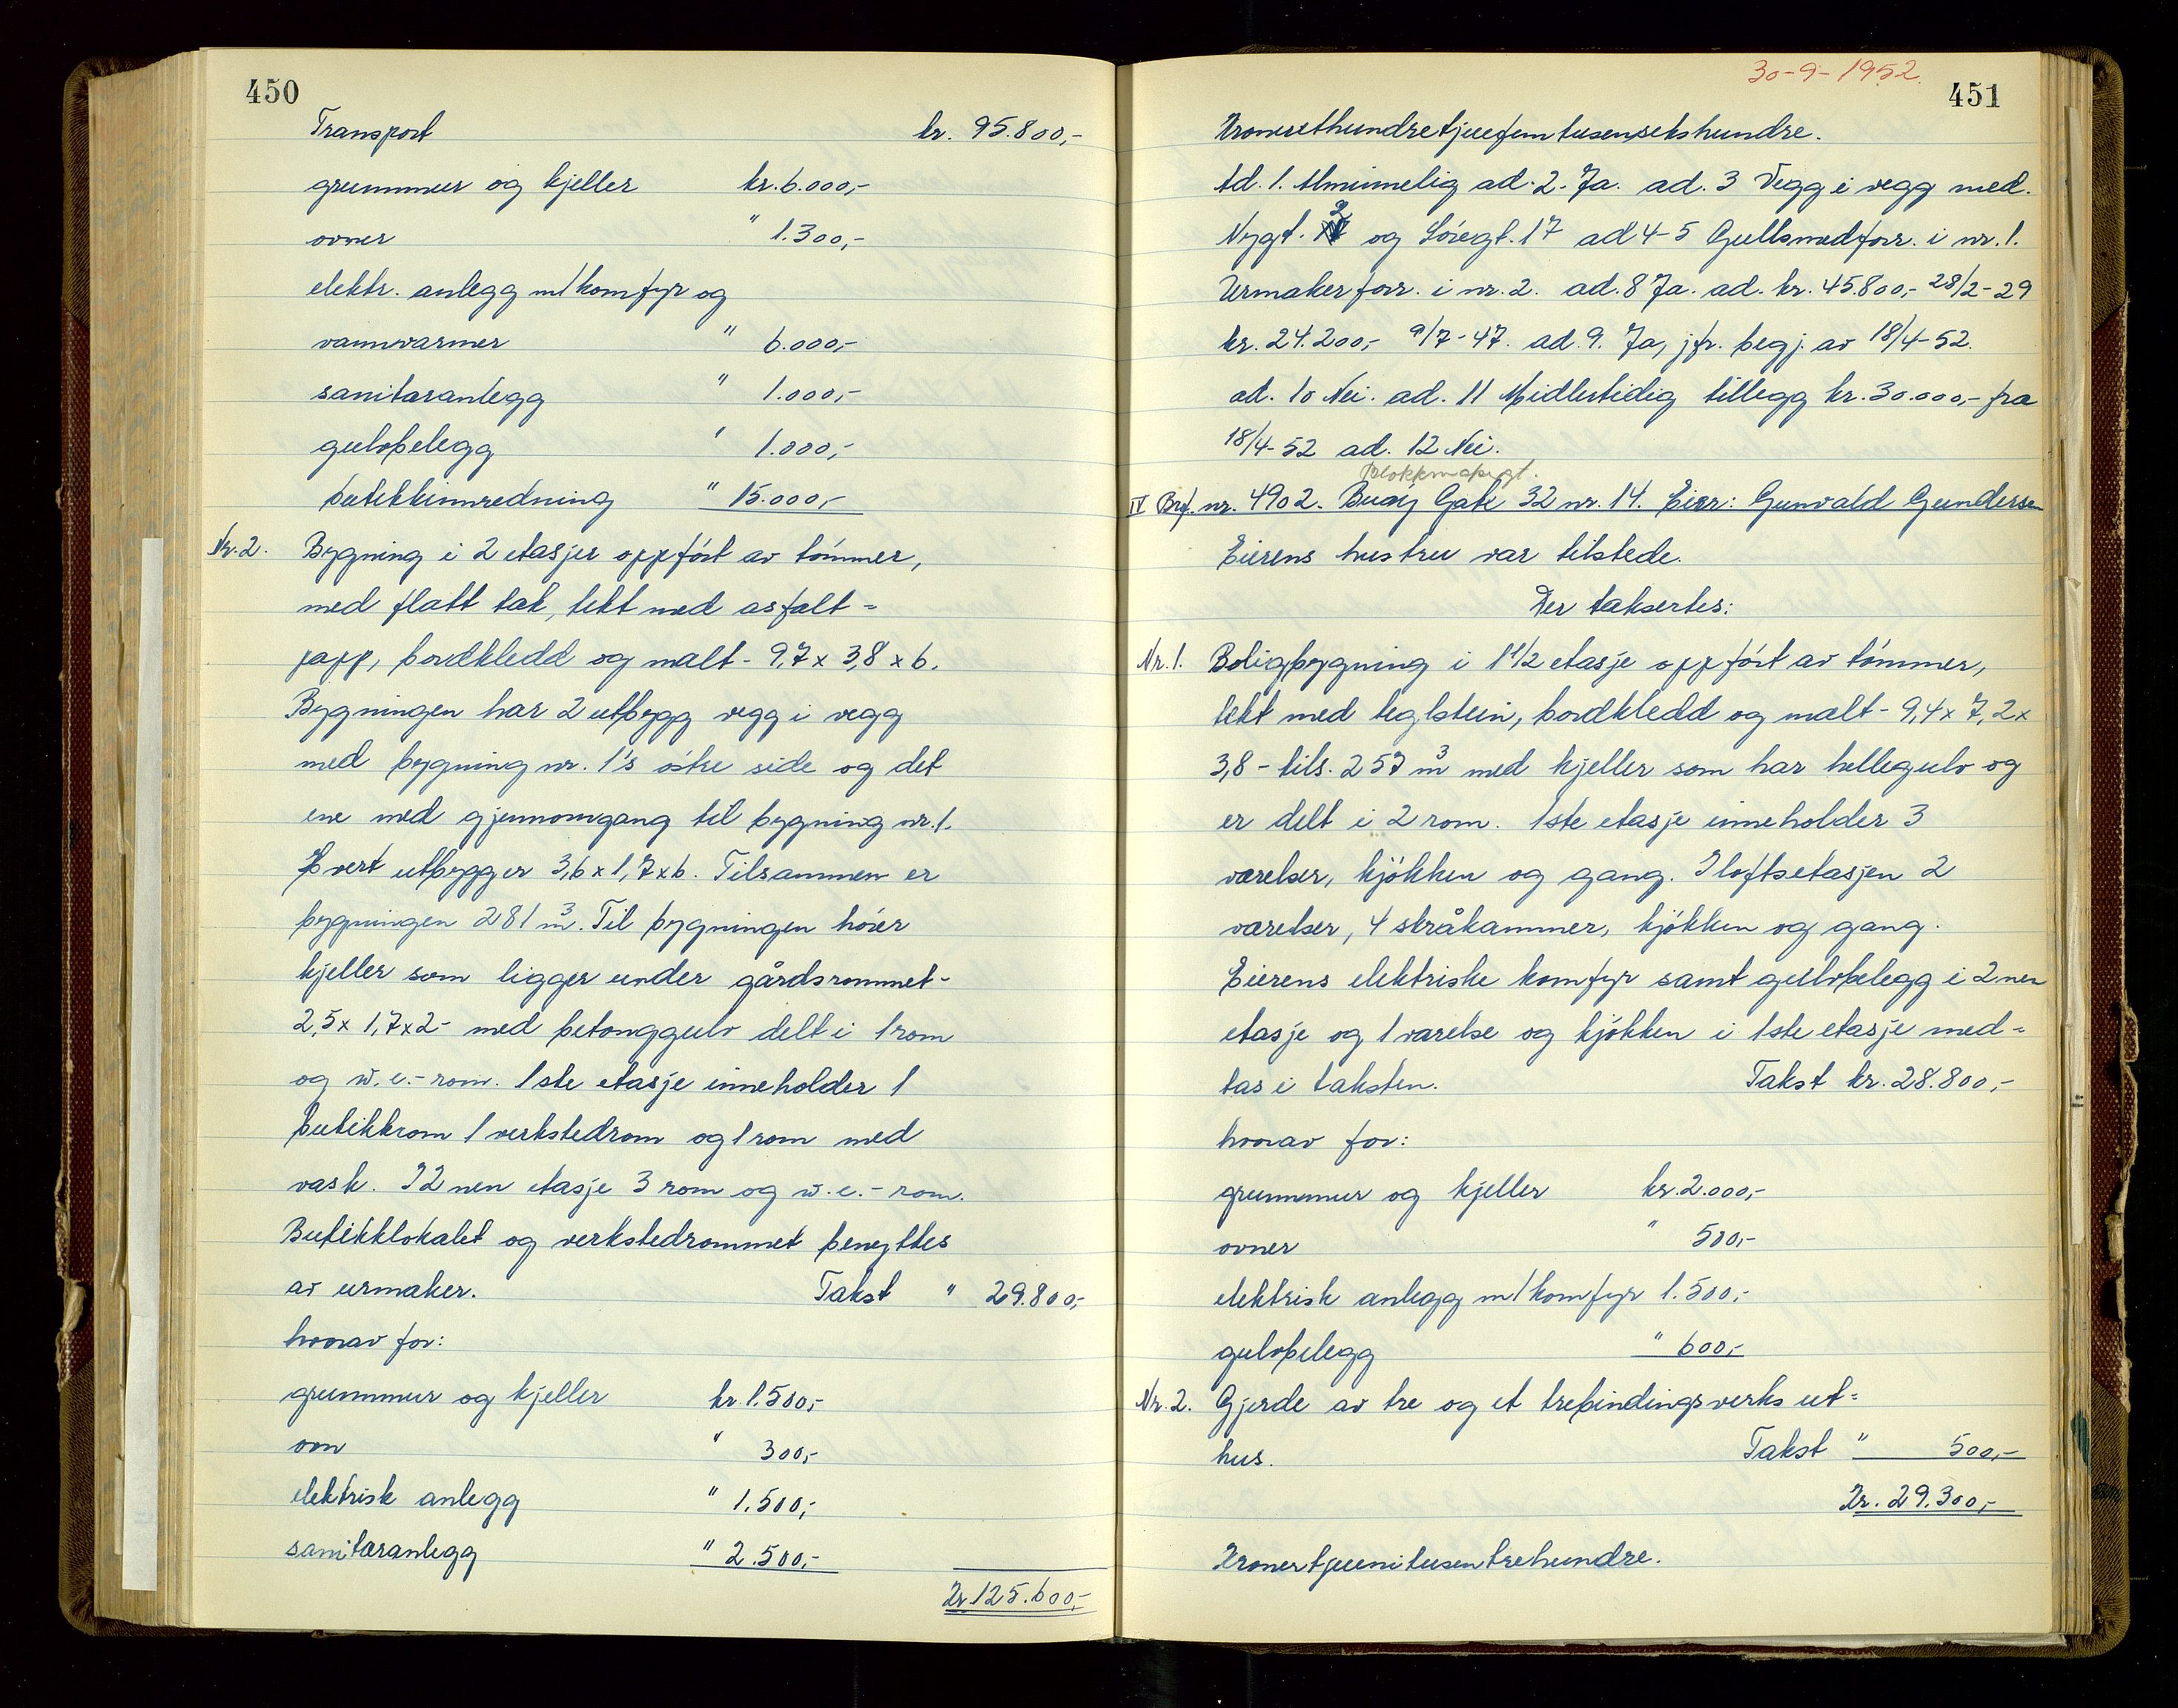 450
Transport kr. 95.800,-
grunnmur og kjeller kr. 6.000,-
ovner " 1.300,-
elektr. anlegg m/komfyr og
vannvarmer " 6.000,-
sanitæranlegg " 1.000,-
gulvbelegg " 1.000,-
butikkinnredning " 15.000,-
Nr. 2. Bygning i 2 etasjer oppført av tømmer,
med flatt tak, tekt med asfalt-
papp, bordkledd og malt - 9,7 x 3,8 x 6.
Bygningen har 2 utbygg vegg i vegg
med bygning nr. 1's østre side og det
ene med gjennomgang til bygning nr. 1.
Hvert utbygg er 3,6 x 1,7 x 6. Tilsammen er
bygningen 281 m³. Til bygningen hører
kjeller som ligger under gårdsrommet -
2,5 x 1,7 x 2 - med betonggulv delt i 1 rom
og w.c.-rom. 1ste etasje inneholder 1
butikkrom 1 verkstedrom og 1 rom med
vask. I 2nen etasje 3 rom og w.c.-rom.
Butikklokalet og verkstedrommet benyttes
av urmaker. Takst " 29.800,-
hvorav for:
grunnmur og kjeller kr. 1.500,-
ovn " 300,-
elektrisk anlegg " 1.500,-
sanitæranlegg " 2.500,-
Kr. 125.600,-
30-9-1952.
451
Kroneretthundretjuefemtusensekshundre.
Ad. 1. Alminnelig ad. 2. Ja. ad. 3 Vegg i vegg med.
Nygt. 2 og Søregt. 17 ad 4-5 Gullsmedforr. i nr. 1.
Urmakerforr. i nr. 2. ad. 8 Ja. ad. kr. 45.800,- 28/2-29
kr. 24.200,- 9/7-47. ad. 9. Ja, jfr. begj. av 18/4-52.
ad. 10 Nei. ad. 11 Midlertidig tillegg kr. 30.000,- fra
18/4-52 ad. 12 Nei.
IV Brf. nr. 4902. Buøy Gate 32 nr. 14. Eier: Gunvald Gundersen
Eierens hustru var tilstede.
Der taksertes:
Nr. 1. Boligbygning i 1 1/2 etasje oppført av tømmer,
tekt med teglstein, bordkledd og malt - 9,4 x 7,2 x
3,8 - tils. 257 m³ med kjeller som har hellegulv og
er delt i 2 rom. 1ste etasje inneholder 3
værelser, kjøkken og gang. I loftsetasjen 2
værelser, 4 skråkammer, kjøkken og gang.
Eierens elektriske komfyr samt gulvbelegg i 2nen
etasje og 1 værelse og kjøkken i 1ste etasje med-
tas i taksten. Takst kr. 28.800,-
hvorav for:
grunnmur og kjeller kr. 2.000,-
ovner " 500,-
elektrisk anlegg m/komfyr 1.500,-
gulvbelegg " 600,-
Nr. 2. Gjerde av tre og et trebindingsverks ut-
hus. Takst " 500,-
Kr. 29.300,-
Kronertjuenitusentrehundre.